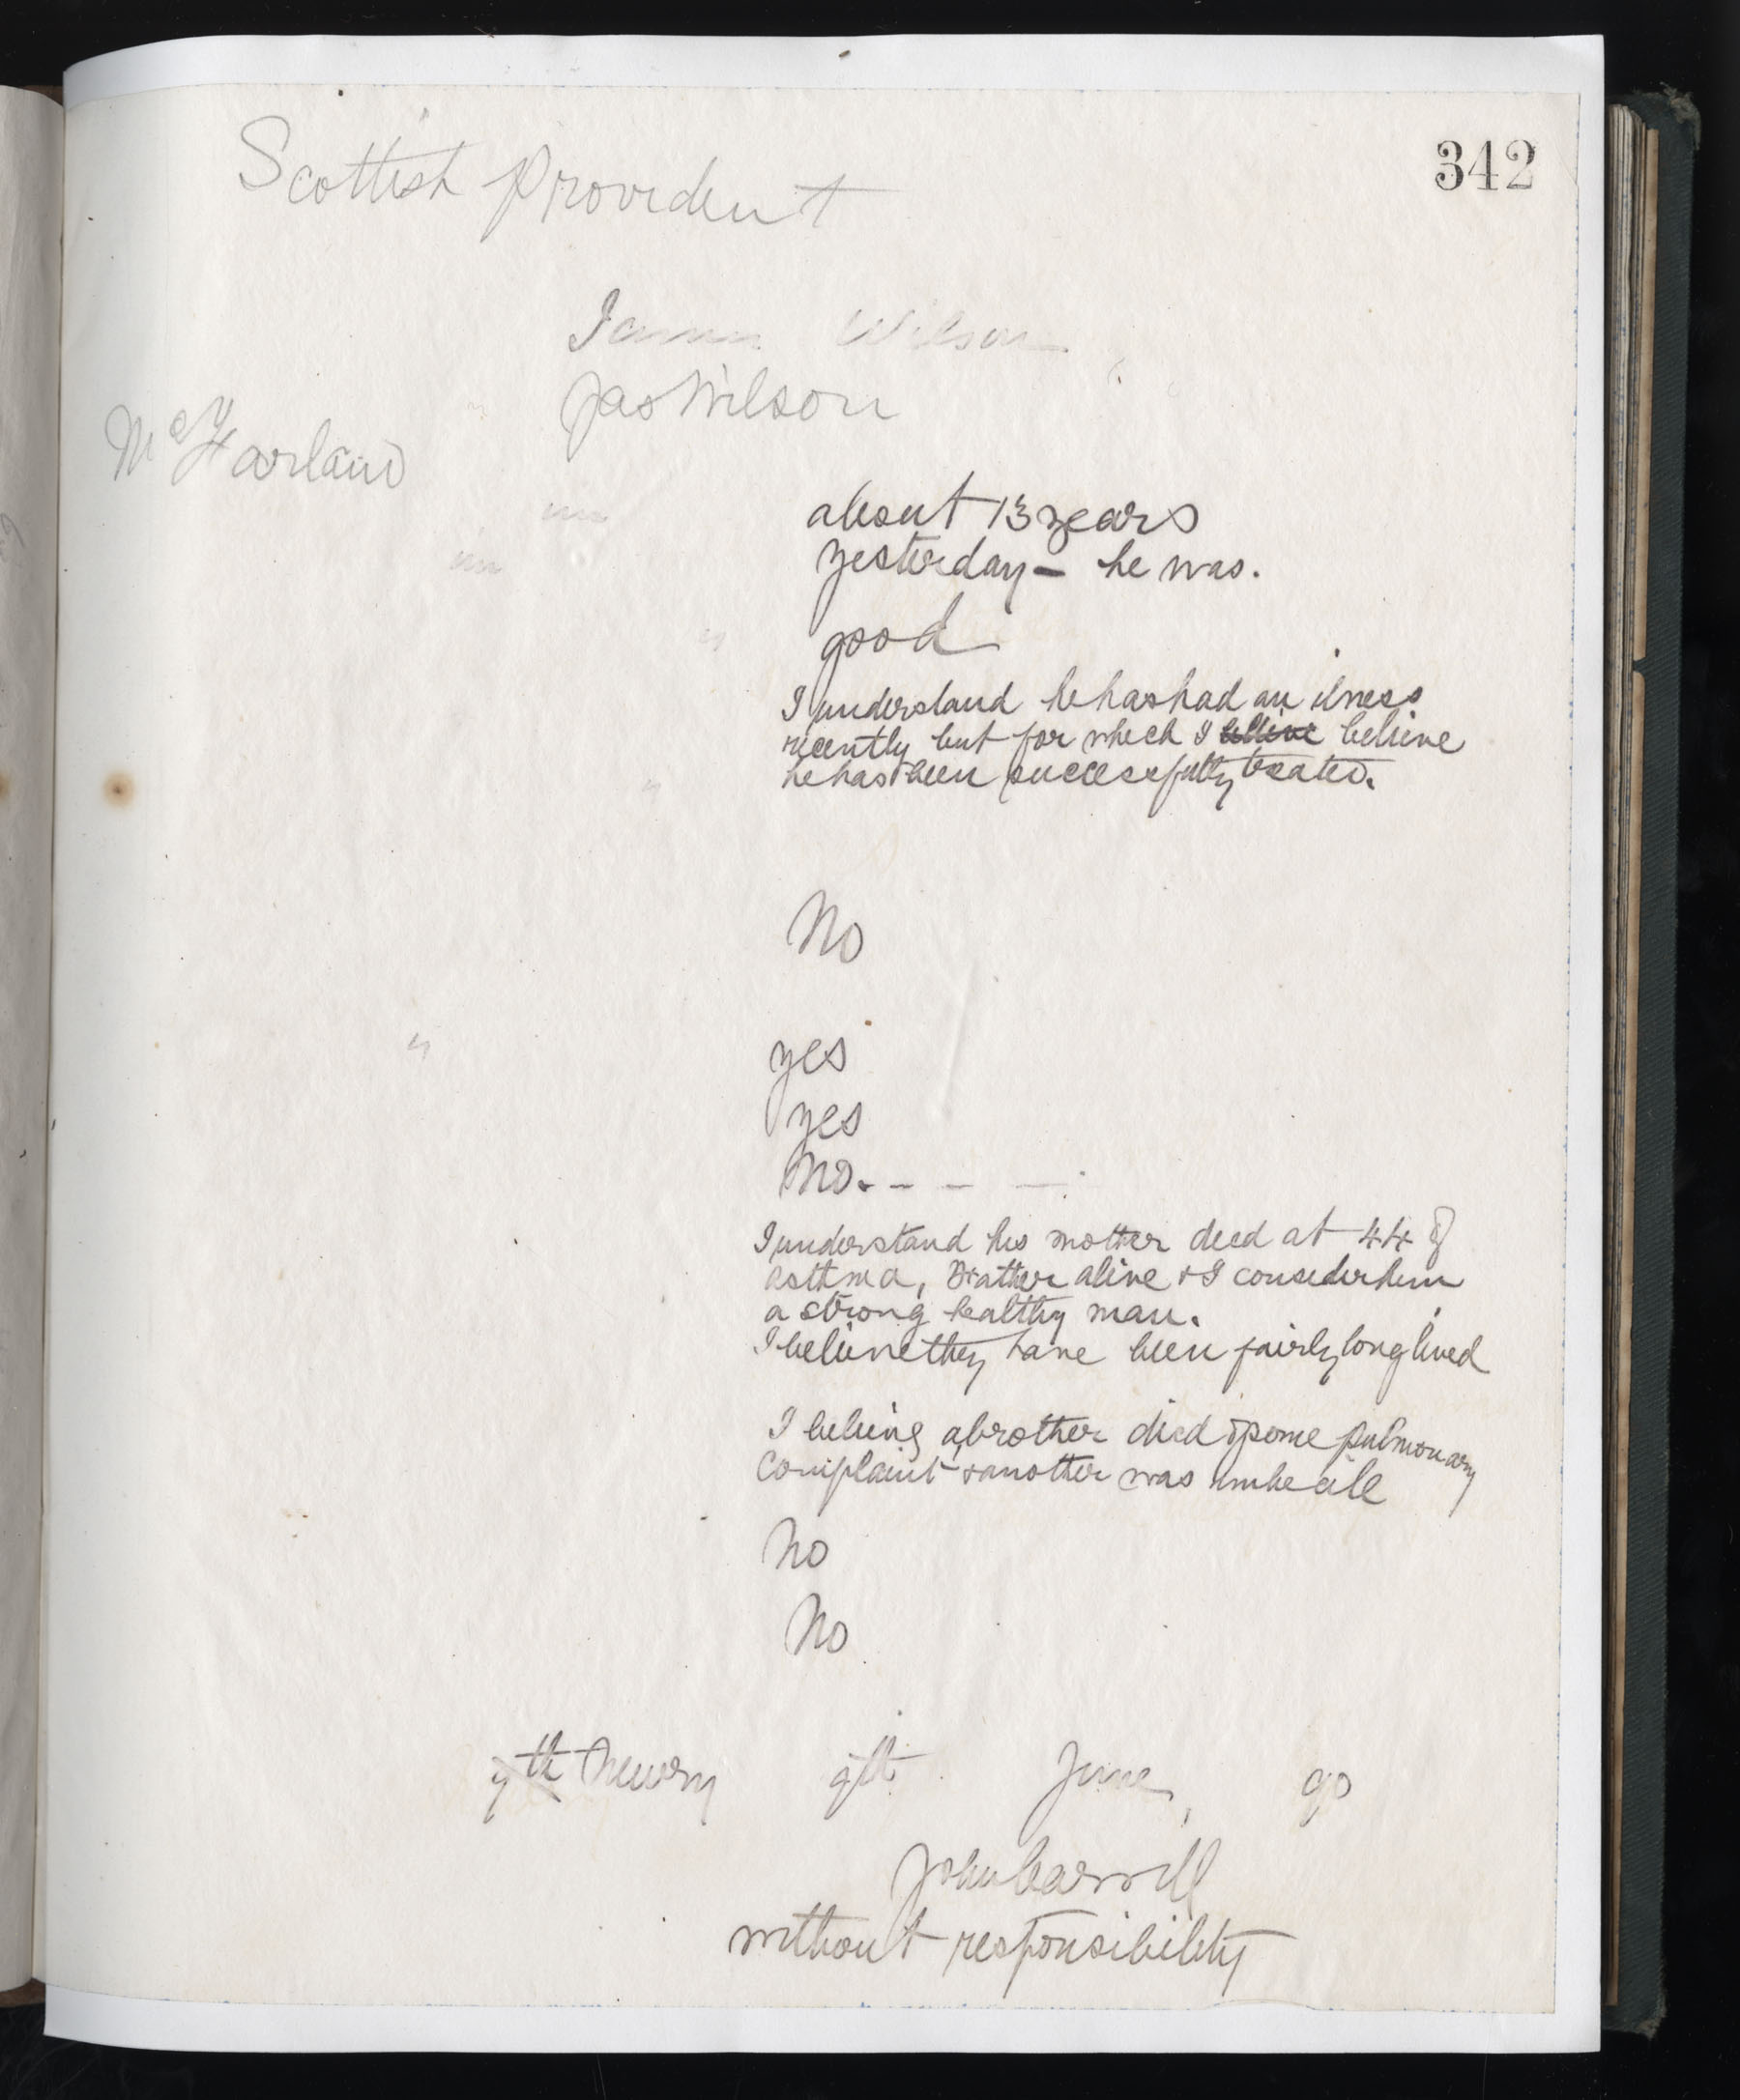 342
Scottish Provident
James Wilson
Jas Wilson
McFarland
about 13 years
yesterday - he was.
good
I understand he has had an ilness
recently but for which I believe believe
he has been successfully treated.
No
yes
yes
No. - - -
I understand his mother died at 44 of
asthma, Father alive & I consider him
a strong healthy man.
I believe they have been fairly long lived
I believe a brother died of some pulmonary
Complaint & another was imbecile
No
No
9th Newry 9th June 90
John Carvill
without responsibility